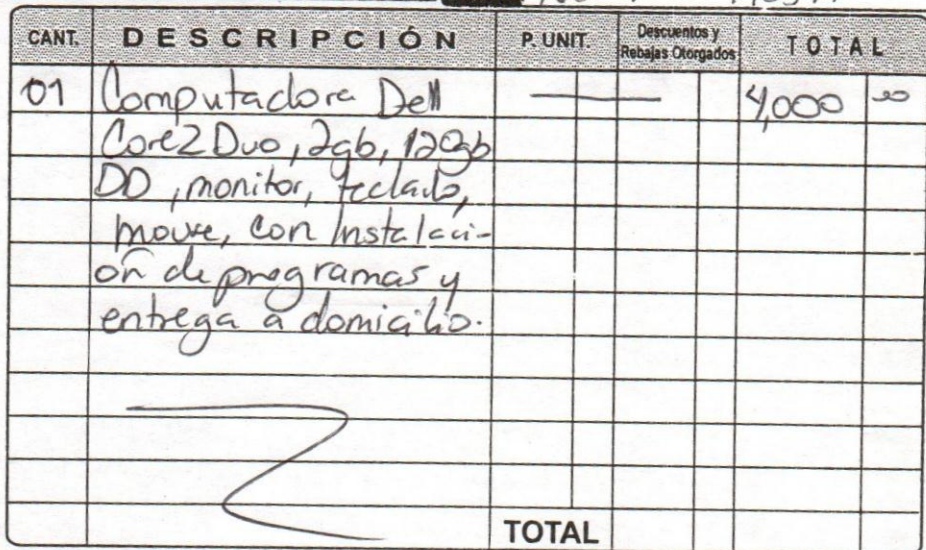 CANT. DESCRIPCIÓN P. UNIT. Descuentos y Rebajas Otorgados TOTAL
01 Computadora Dell 4,000 00
Core2Duo, 2gb, 120gb
DD, monitor, teclado,
mouse, con Instalaci-
ón de programas y
entrega a domicilio.
TOTAL